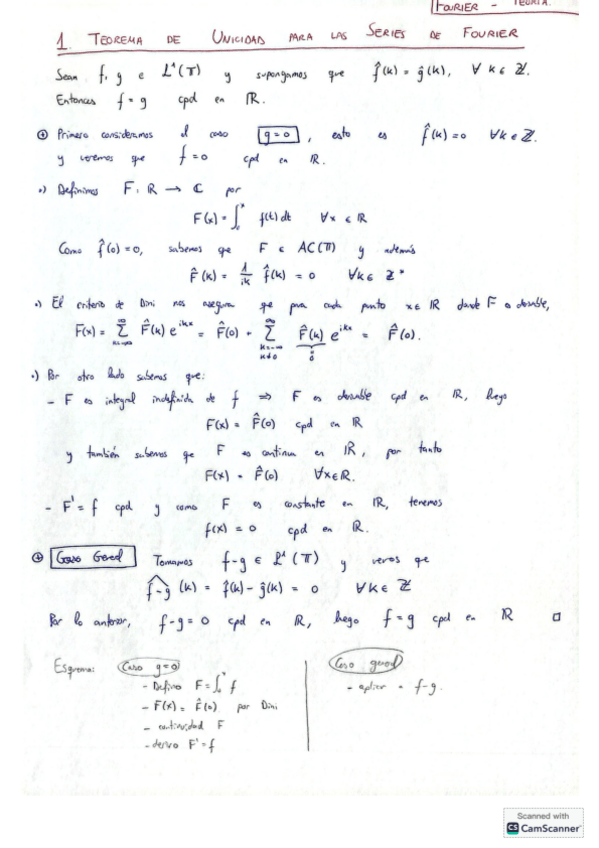 FOURIER - TEORÍA
1. TEOREMA DE UNICIDAD PARA LAS SERIES DE FOURIER
Sean f, g ∈ L¹(𝕋) y supongamos que f̂(k) = ĝ(k), ∀ k ∈ ℤ.
Entonces f = g cpd en ℝ.
Primero consideramos el caso g=0, esto es f̂(k)=0 ∀k∈ℤ.
y veremos que f=0 cpd en ℝ.
•) Definimos F: ℝ → ℂ por
F(x) = ∫₀ˣ f(t) dt ∀x ∈ ℝ
Como f̂(0)=0, sabemos que F ∈ AC(𝕋) y además
F̂(k) = 1/ik f̂(k) = 0 ∀k∈ ℤ*
•) El criterio de Dini nos asegura que para cada punto x∈ℝ donde F es derivable,
F(x) = ∑_{k=-∞}^{∞} F̂(k) e^{ikx} = F̂(0) + ∑_{k=-∞, k≠0}^{∞} F̂(k) e^{ikx} = F̂(0).
0
•) Por otro lado sabemos que:
- F es integral indefinida de f ⇒ F es derivable cpd en ℝ, luego
F(x) = F̂(0) cpd en ℝ
y también sabemos que F es continua en ℝ, por tanto
F(x) = F̂(0) ∀x∈ℝ.
- F' = f cpd y como F es constante en ℝ, tenemos
f(x) = 0 cpd en ℝ.
Caso General Tomamos f-g ∈ L¹(𝕋) y vemos que
f-g^(k) = f̂(k) - ĝ(k) = 0 ∀k∈ ℤ
Por lo anterior, f-g = 0 cpd en ℝ, luego f = g cpd en ℝ □
Esquema: Caso g=0
- Defino F = ∫₀ˣ f
- F(x) = F̂(0) por Dini
- continuidad F
- derivo F' = f
Caso general
- aplicar a f-g.
Scanned with
CS CamScanner